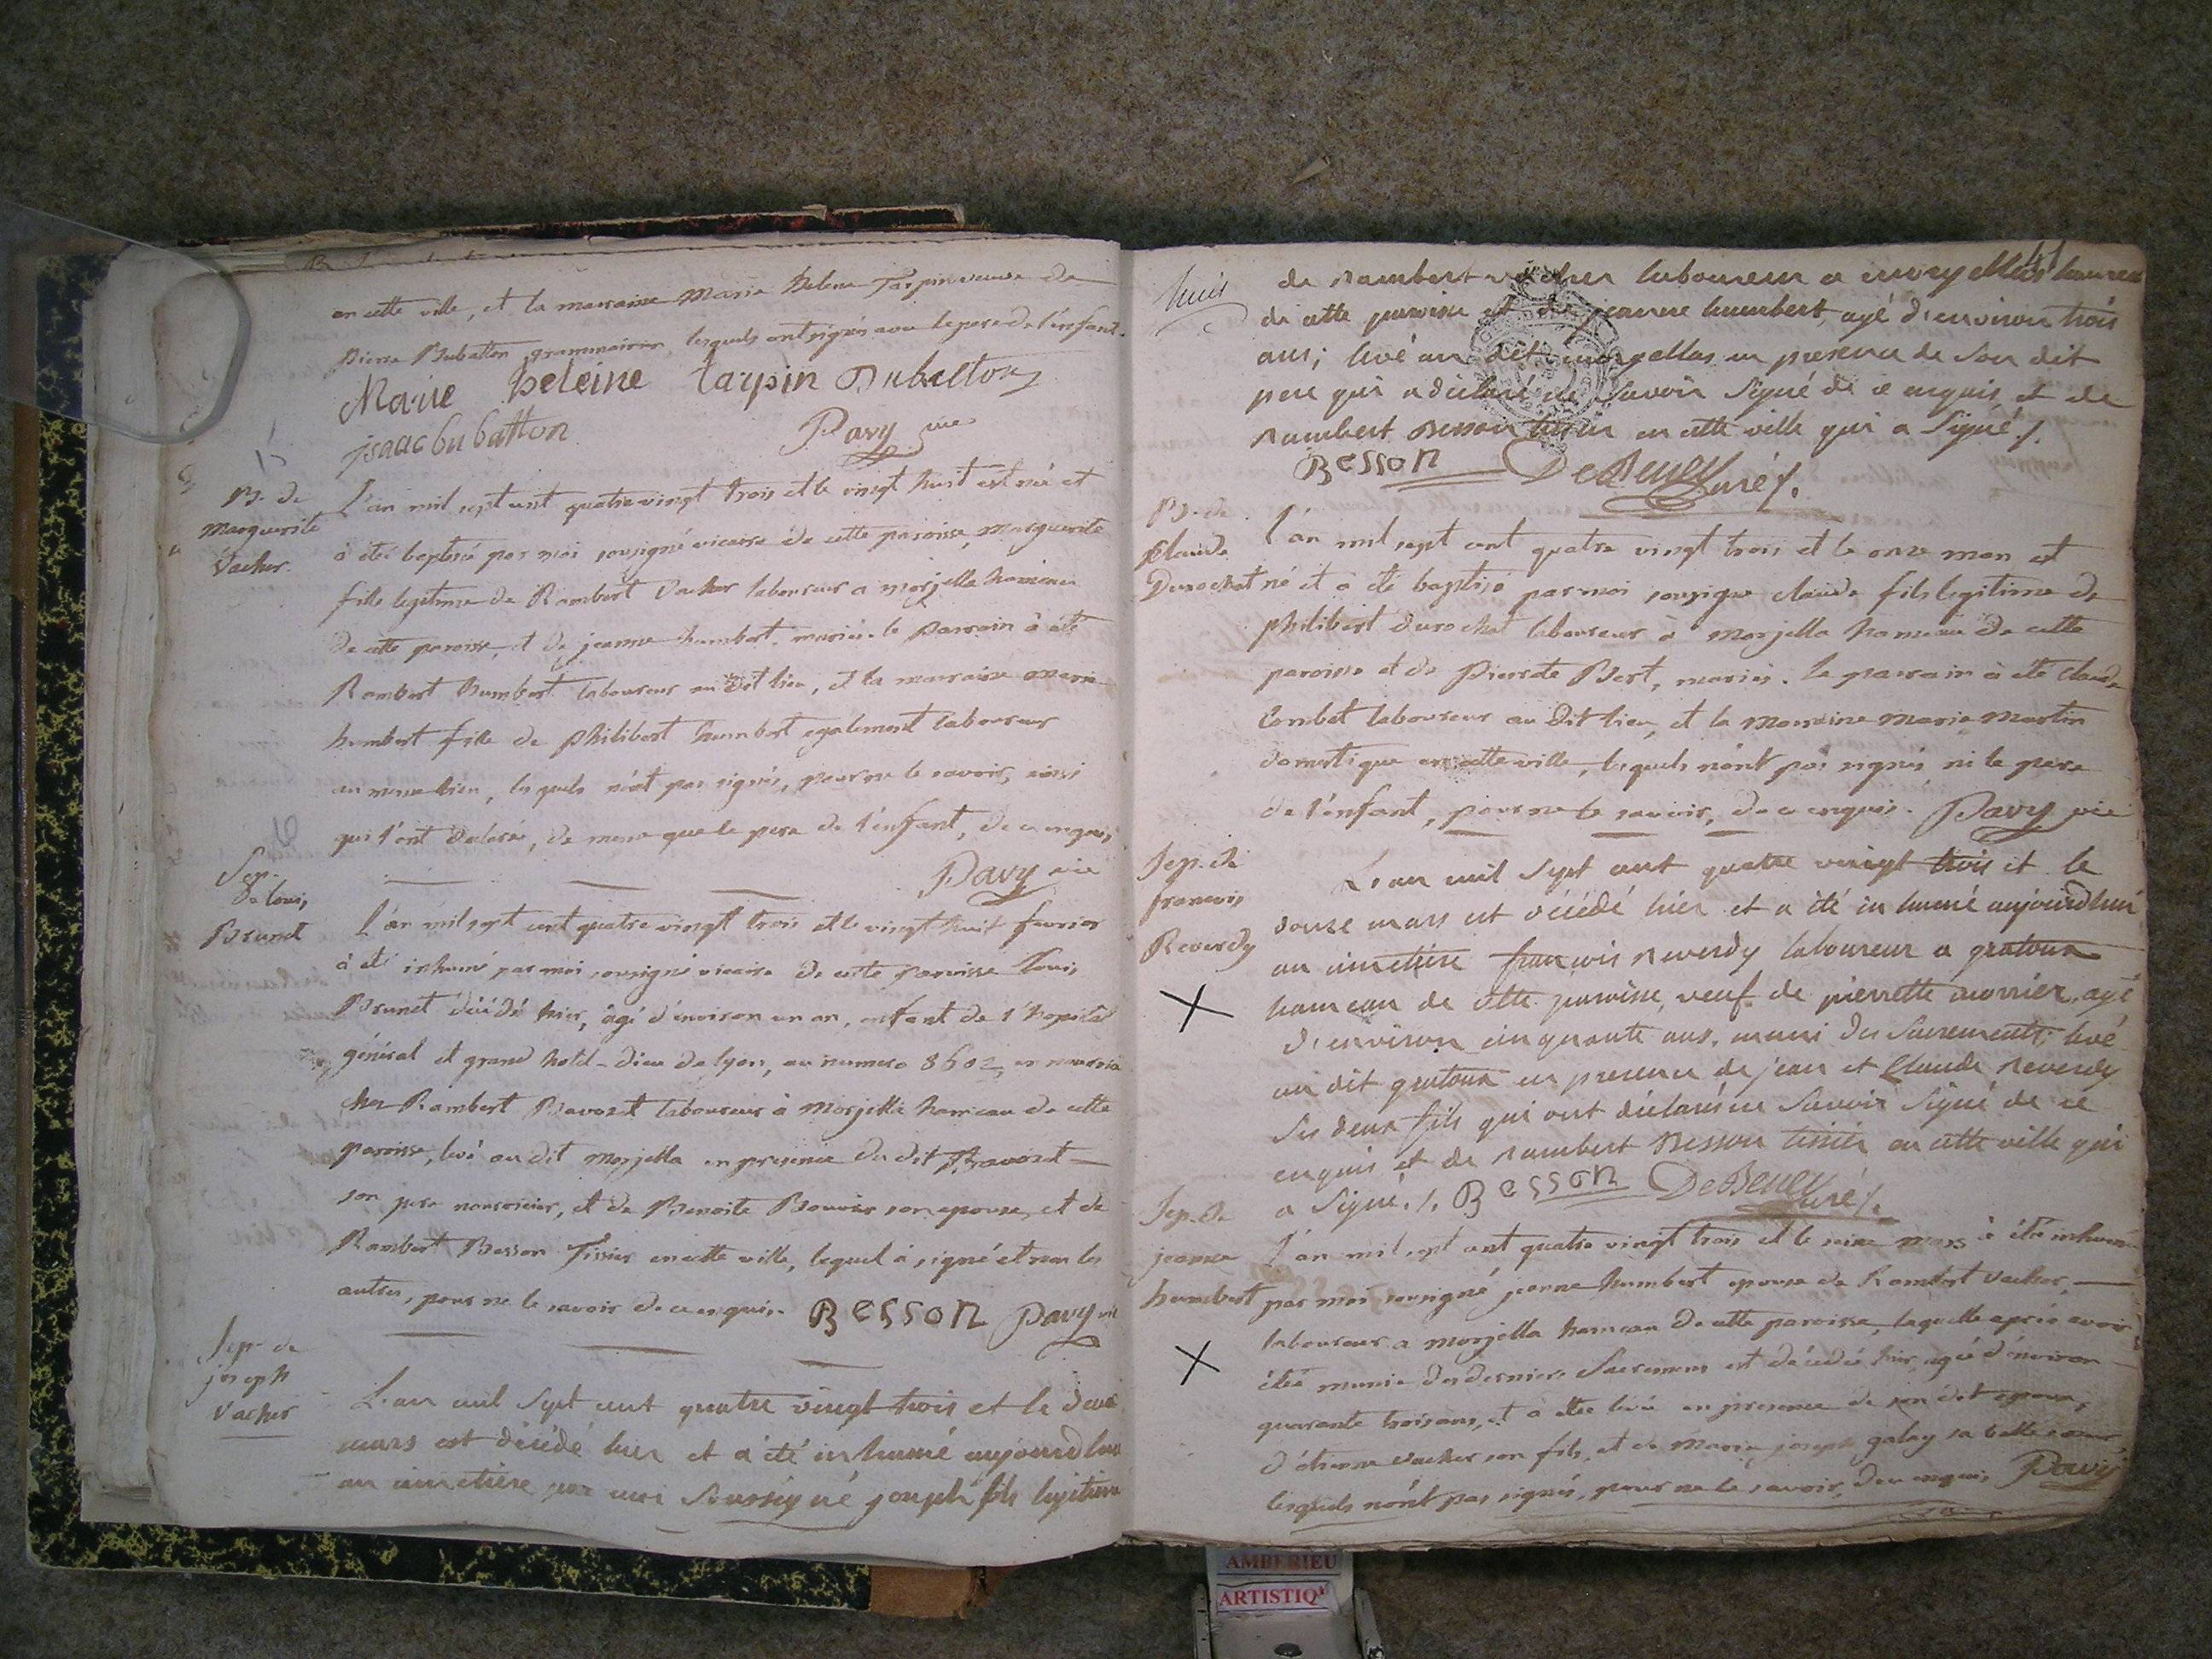 en cette ville, et la marraine Marie Helene Tarpin veuve de
Pierre Dubatton grammairien, lesquels ont signés avec le pere de l'enfant.
Marie heleine tarpin Dubatton
jsaac dubatton Pavy vic
B. de
Marguerite
Vacher
L'an mil sept cent quatre vingt trois et le vingt huit est née et
à été baptisée par moi sousigné vicaire de cette paroisse, Marguerite
fille legitime de Rambert Vacher laboureur a morjella hameau
de cette paroisse, et de jeanne humbert, mariés. le Parrain à été
Rambert humbert laboureur au dit lieu, et la marraine Marie
humbert fille de philibert humbert egalement laboureur
au meme lieu, lesquels n'ont pas signés, pour ne le savoir, ainsi
qui l'ont declarés, de meme que le pere de l'enfant, de ce enquis,
Pavy vic
Sep.
de loui,
Brunet
L'an mil sept cent quatre vingt trois et le vingt huit fevrier
à été inhumé par moi sousigné vicaire de cette paroisse Louis
Brunet décédé hier, âgé d'environ un an, enfant de l'hopital
général et grand hotel-dieu de lyon, au numero 8602, en nourrice
chez Rambert Bavozet laboureur à Morjella hameau de cette
paroisse, levé au dit Morjella en presence du dit Bavozet
son pere nourricier, et de Benoite Bouvier son epouse, et de
Rambert Besson Tissier en cette ville, lequel à signé et non les
autres, pour ne le savoir de ce enquis. BESSON Pavy vic
Sep. de
joseph
Vacher
L'an mil sept cent quatre vingt trois et le deux
mars est décédé hier et a été inhumé aujourdhui
au cimetière par moi soussigné joseph fils legitime
41
huis
de rambert vacher laboureur a morgellas hameau
de cette paroisse et de jeanne humbert, agé d'environ trois
ans; levé au dit morgellas en presence de son dit
pere qui a declaré ne savoir signé de ce enquis et de
rambert Besson tissier en cette ville qui a signé./.
BESSON curé/.
B. de
Claude
Durochat
l'an mil sept cent quatre vingt trois et le onze mars est
né et a été baptisé par moi sousigné claude fils legitime de
philibert durochat laboureur à Morjella hameau de cette
paroisse et de Pierrete Bert, mariés. le parrain à été Claude
Combet laboureur au dit lieu, et la Marraine Marie Martin
domestique en cette ville, lesquels n'ont pas signés, ni le pere
de l'enfant, pour ne le savoir, de ce enquis. Pavy vic
Sep. de
francois
Reverdy
L'an mil sept cent quatre vingt trois et le
douze mars est décédé hier et a été inhumé aujourdhui
au cimetière francois reverdy laboureur a gratoux
hameau de cette paroisse, veuf de pierrette morrier, agé
d'environ cinquante ans, muni des sacrements; levé
au dit gratoux en presence de jean et Claude reverdy
ses deux fils qui ont déclaré ne savoir signé de ce
enquis et de rambert Besson tissier en cette ville qui
a signé./. BESSON curé/.
Sep. de
jeanne
humbert
L'an mil sept cent quatre vingt trois et le seize mars à été inhumée
par moi sousigné jeanne humbert epouse de Rambert Vacher,
laboureur a morjella hameau de cette paroisse, laquelle après avoir
été munie des derniers Sacremens est décédée hier, agée d'environ
quarante trois ans, et a été levée en presence de son dit epoux,
d'étienne Vacher son fils, et de Marie joseph galay sa belle soeur,
lesquels n'ont pas signés, pour ne le savoir, de ce enquis Pavy
AMBERIEU
ARTISTIQ